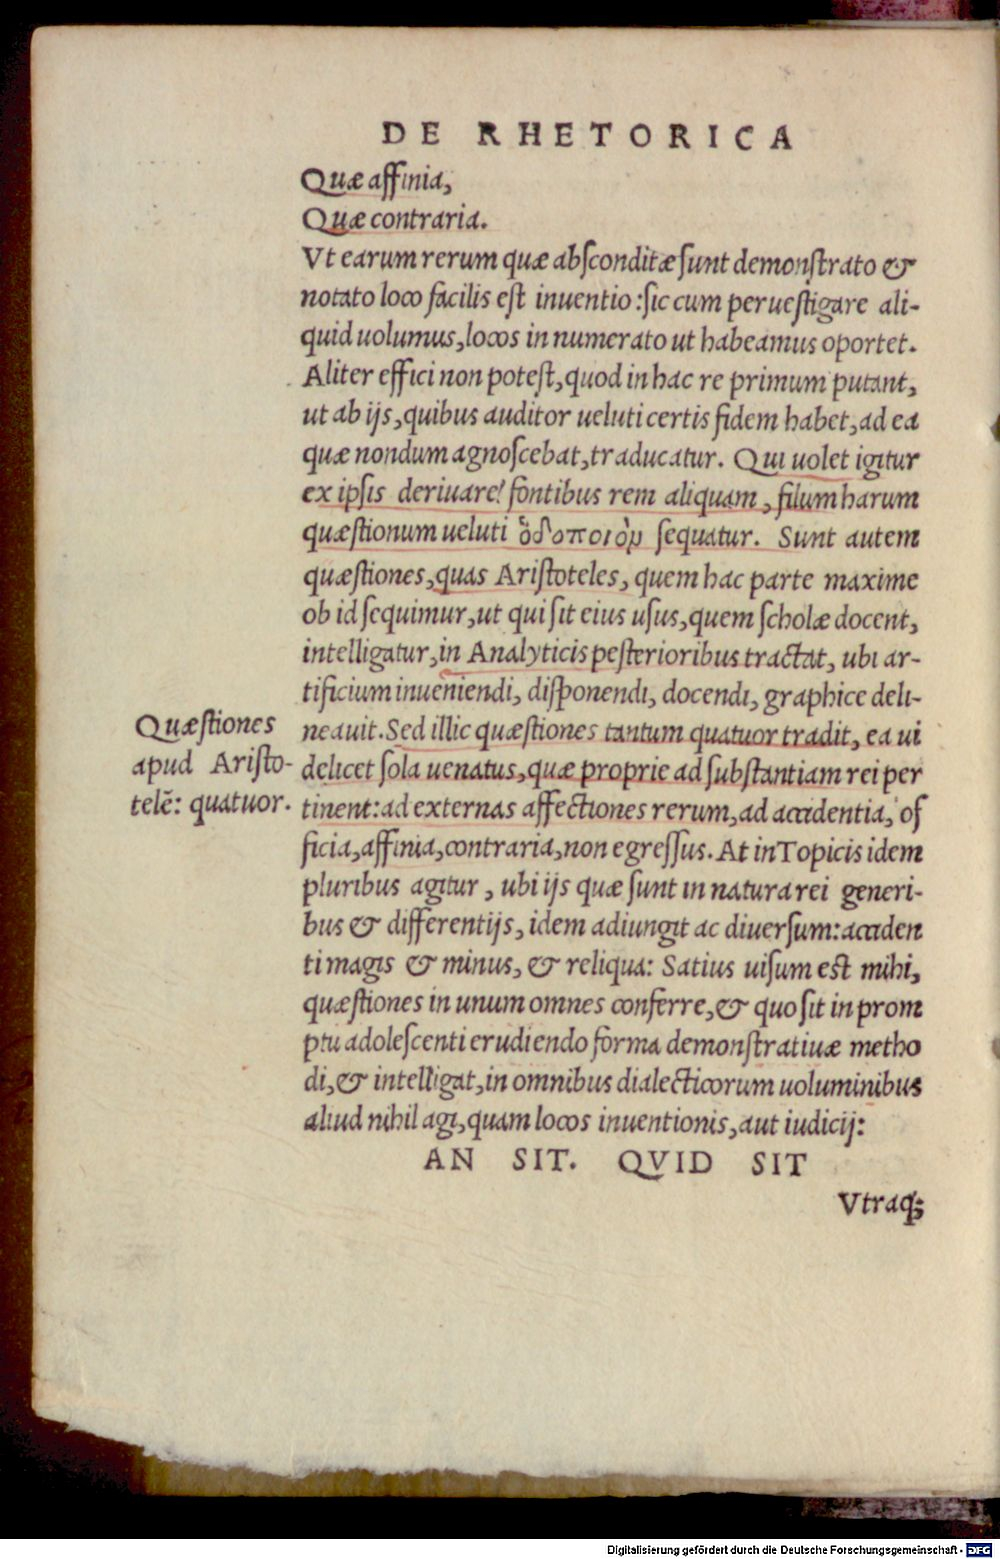 DE RHETORICA
Quæ affinia,
Quæ contraria.
Vt earum rerum quæ abſconditæ ſunt demonſtrato &
notato loco facilis eſt inuentio: ſic cum perueſtigare ali-
quid uolumus, locos in numerato ut habeamus oportet.
Aliter effici non poteſt, quod in hac re primum putant,
ut ab ijs, quibus auditor ueluti certis fidem habet, ad ea
quæ nondum agnoſcebat, traducatur. Qui uolet igitur
ex ipſis deriuare fontibus rem aliquam, filum harum
quæſtionum ueluti ὁδοποιὸμ ſequatur. Sunt autem
quæſtiones, quas Ariſtoteles, quem hac parte maxime
ob id ſequimur, ut qui ſit eius uſus, quem ſcholæ docent,
intelligatur, in Analyticis poſterioribus tractat, ubi ar-
tificium inueniendi, diſponendi, docendi, graphice deli-
neauit. Sed illic quæſtiones tantum quatuor tradit, ea ui
delicet ſola uenatus, quæ proprie ad ſubſtantiam rei per
tinent: ad externas affectiones rerum, ad accidentia, of
ficia, affinia, contraria, non egreſſus. At in Topicis idem
pluribus agitur, ubi ijs quæ ſunt in natura rei generi-
bus & differentijs, idem adiungit ac diuerſum: acciden
ti magis & minus, & reliqua: Satius uiſum est mihi,
quæſtiones in unum omnes conferre, & quo ſit in prom
ptu adoleſcenti erudiendo forma demonſtratiuæ metho
di, & intelligat, in omnibus dialecticorum uoluminibus
aliud nihil agi, quam locos inuentionis, aut iudicij:
AN SIT. QVID SIT
Vtraq;
Quæſtiones
apud Ariſto-
telẽ: quatuor.
Digitalisierung gefördert durch die Deutsche Forschungsgemeinschaft - DFG